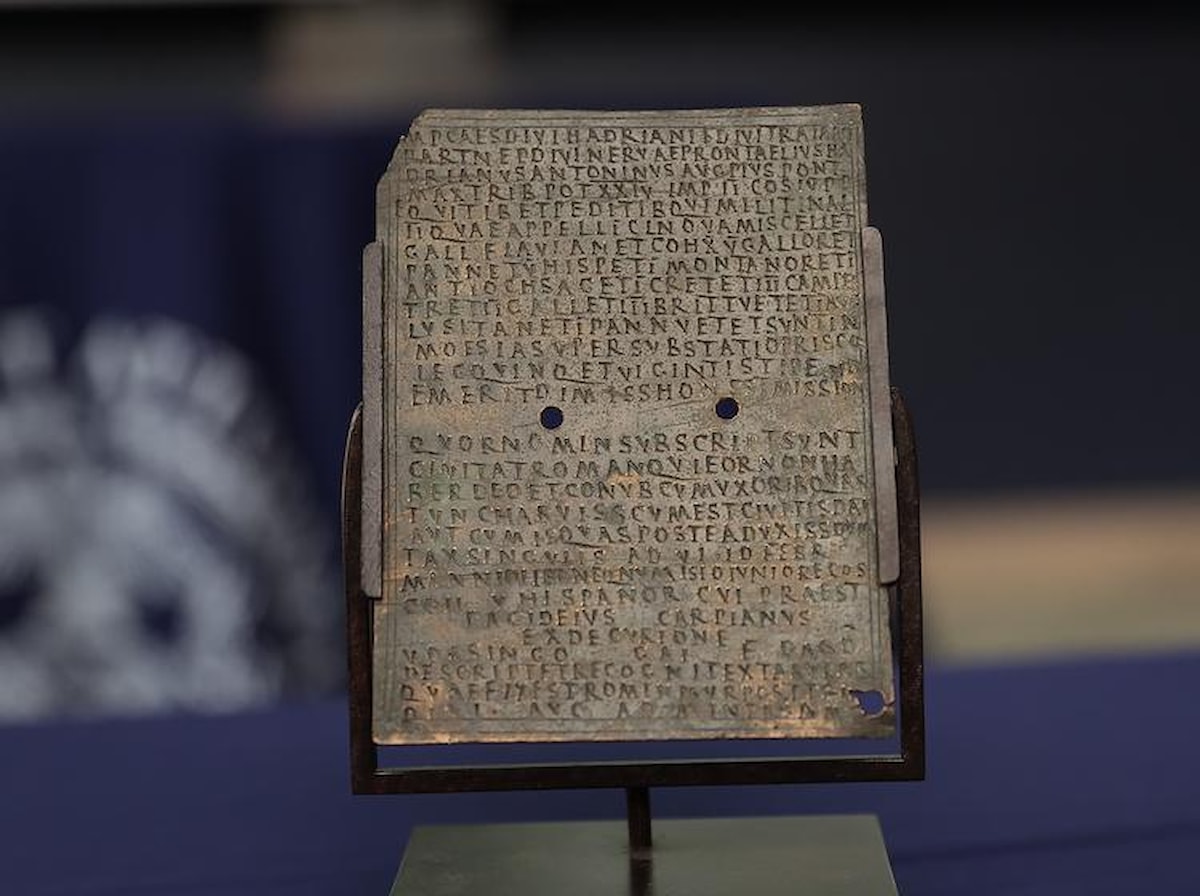 MP CAES DIVI HADRIANI F DIVI TRAIANI
PARTN EP DIVI NERVAE PRON T AELIVS HA
DRIANVS ANTONINVS AVG PIVS PONT
MAX TRIB POT XXIV IMP II COS IV PP
EQVITIB ET PEDITIB QVI MILIT IN AL
II QVAE APPELL I CL NOVA MISCELL ET
GALL FLAVIANA ET COH X V GALLOR ET
PANN ET V HISP ET I MONTANOR ET I
ANTIOCH SAG ET I CRET ET III CAMP
ET III GALL ET III BRITT VET ET I
LVSITAN ET I PANN VET ET SVNT IN
MOESIA SVPER SVB STATIO PRISCO
LEG QVINQ ET VIGINTI STIPE
EMERIT DIMISS HON MISSION
QVOR NOMIN SVBSCRIPT SVNT
CIVITAT ROMAN QVI EOR NON HA
BER DED ET CONVB CVM VXORIB QVAS
TVNC HAB VISS CVM EST CIVIT IS DAT
AVT CVM IS QVAS POSTEA DVXISS DVM
TAX SINGVLIS A D VI ID FEBR
IVNIORE COS
COH V HISPANOR CVI PRAEST
FACIDEIVS CARPIANVS
EX DECVRIONE
DESCRIPT ET RECOGNIT EX TABVL
QVAE FIX EST ROM IN MVR POST
AVG AD MINERVAM